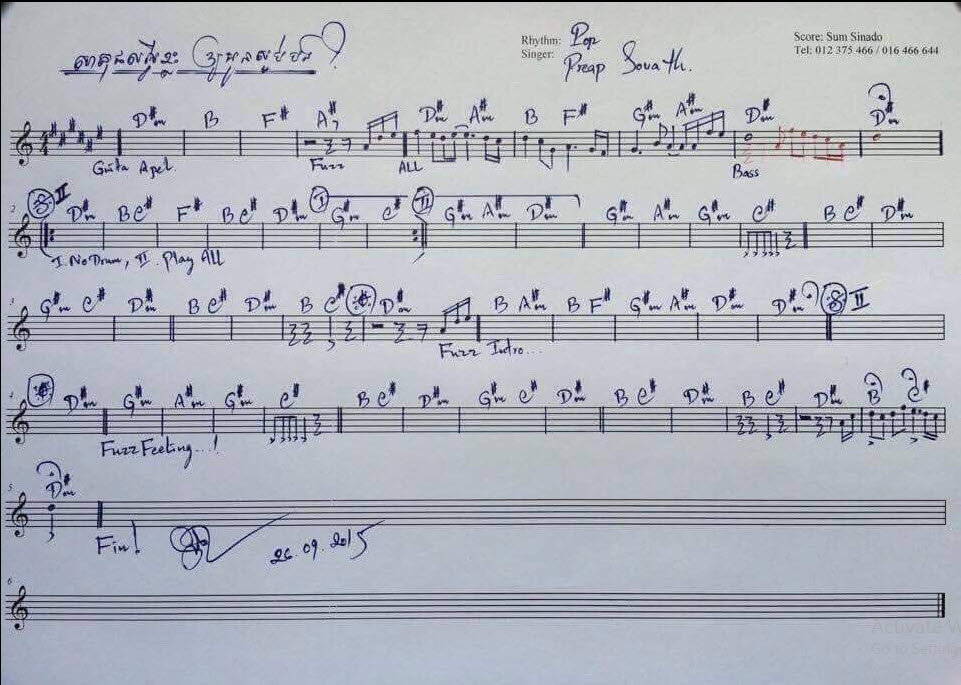 Rhythm: Pop
Singer: Preap Sovath.
Score: Sum Sinado
Tel: 012 375 466 / 016 466 644
D#m B F# A#7 D#m A#m B F# G#m A#m D#m D#m
4/4
Guita Apel. Fuzz ALL Bass
2
II
D#m B C# F# B C# D#m I G#m C# II G#m A#m D#m G#m A#m G#m C# B C# D#m
I. No Drum, II. Play ALL
3
G#m C# D#m B C# D#m B C# D#m B A#m B F# G#m A#m D#m D#m II
Fuzz Intro...
4
D#m G#m A#m G#m C# B C# D#m G#m C# D#m B C# D#m B C# D#m B C#
Fuzz Feeling...!
5
D#m
Fin!
26.09.2015
6
Activate W
Go to Setting